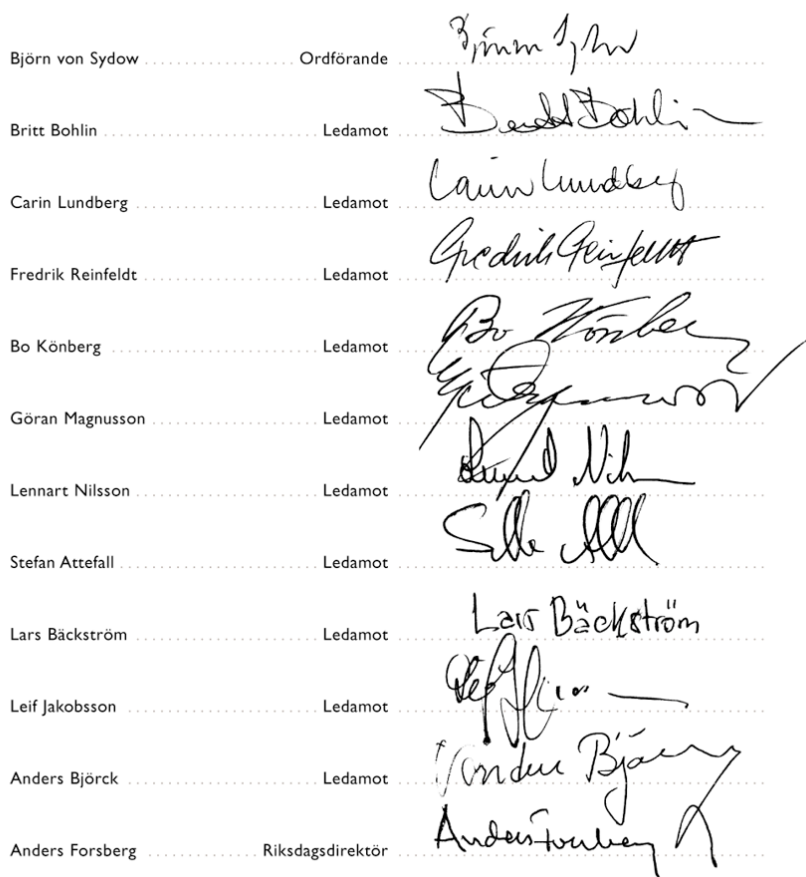 Björn von Sydow Ordförande Björn Sydow
Britt Bohlin Ledamot Bohlin
Carin Lundberg Ledamot Carin Lundberg
Fredrik Reinfeldt Ledamot Fredrik Reinfeldt
Bo Könberg Ledamot Bo Könberg
Göran Magnusson Ledamot
Lennart Nilsson Ledamot
Stefan Attefall Ledamot
Lars Bäckström Ledamot Lars Bäckström
Leif Jakobsson Ledamot
Anders Björck Ledamot
Anders Forsberg Riksdagsdirektör Anders Forsberg